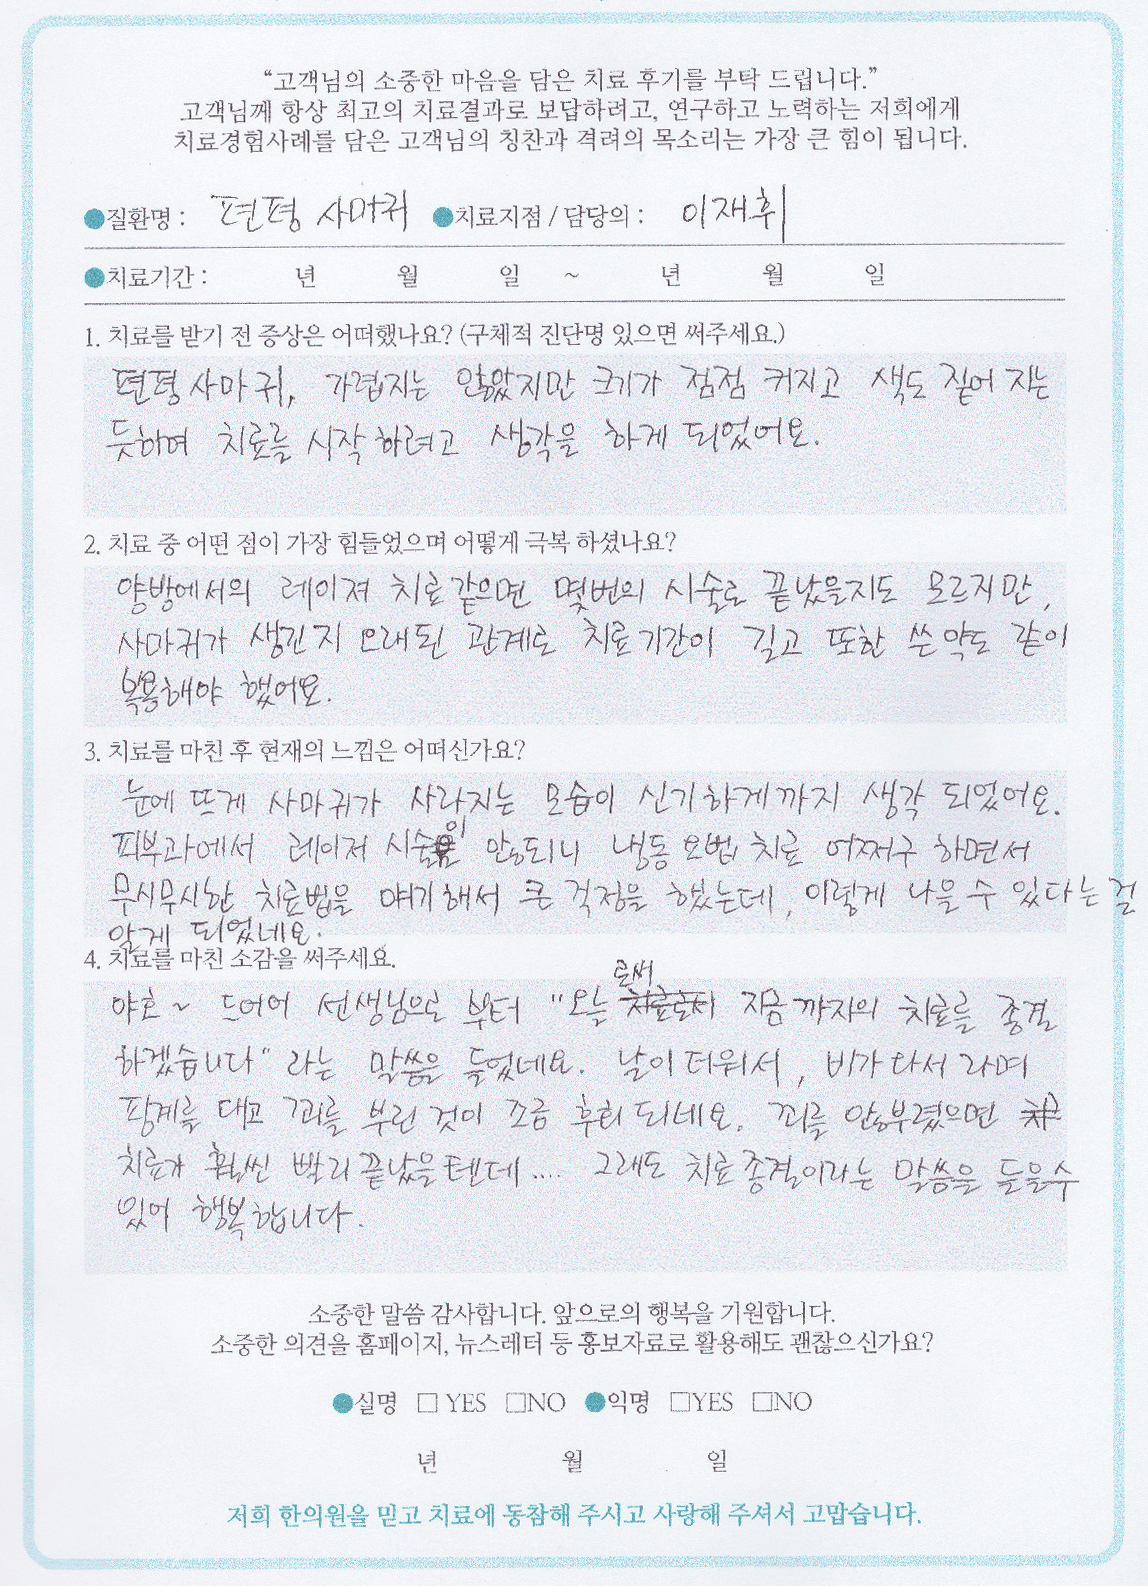 “고객님의 소중한 마음을 담은 치료 후기를 부탁 드립니다.”
고객님께 항상 최고의 치료결과로 보답하려고, 연구하고 노력하는 저희에게
치료경험사례를 담은 고객님의 칭찬과 격려의 목소리는 가장 큰 힘이 됩니다.
●질환명 : 편평 사마귀 ●치료지점 / 담당의 : 이재휘
●치료기간 : 년 월 일 ~ 년 월 일
1. 치료를 받기 전 증상은 어떠했나요? (구체적 진단명 있으면 써주세요.)
편평 사마귀, 가렵지는 않았지만 크기가 점점 커지고 색도 짙어 지는
듯하여 치료를 시작하려고 생각을 하게 되었어요.
2. 치료 중 어떤 점이 가장 힘들었으며 어떻게 극복 하셨나요?
양방에서의 레이져 치료같으면 몇번의 시술로 끝났을지도 모르지만,
사마귀가 생긴지 오래된 관계로 치료기간이 길고 또한 쓴약도 같이
복용해야 했어요.
3. 치료를 마친 후 현재의 느낌은 어떠신가요?
눈에 뜨게 사마귀가 사라지는 모습이 신기하게까지 생각 되었어요.
피부과에서 레이저 시술이 안되니 냉동요법 치료 어쩌구 하면서
무시무시한 치료법을 얘기해서 큰 걱정을 했는데, 이렇게 나을 수 있다는 걸
알게 되었네요.
4. 치료를 마친 소감을 써주세요.
야호~ 드디어 선생님으로 부터 "오늘로써 지금까지의 치료를 종결
하겠습니다" 라는 말씀을 들었네요. 날이 더워서, 비가 와서 라며
핑계를 대고 꾀를 부린 것이 조금 후회 되네요. 꾀를 안부렸으면
치료가 훨씬 빨리 끝났을텐데.... 그래도 치료종결이라는 말씀을 들을수
있어 행복합니다.
소중한 말씀 감사합니다. 앞으로의 행복을 기원합니다.
소중한 의견을 홈페이지, 뉴스레터 등 홍보자료로 활용해도 괜찮으신가요?
●실명 □ YES □NO ●익명 □YES □NO
년 월 일
저희 한의원을 믿고 치료에 동참해 주시고 사랑해 주셔서 고맙습니다.